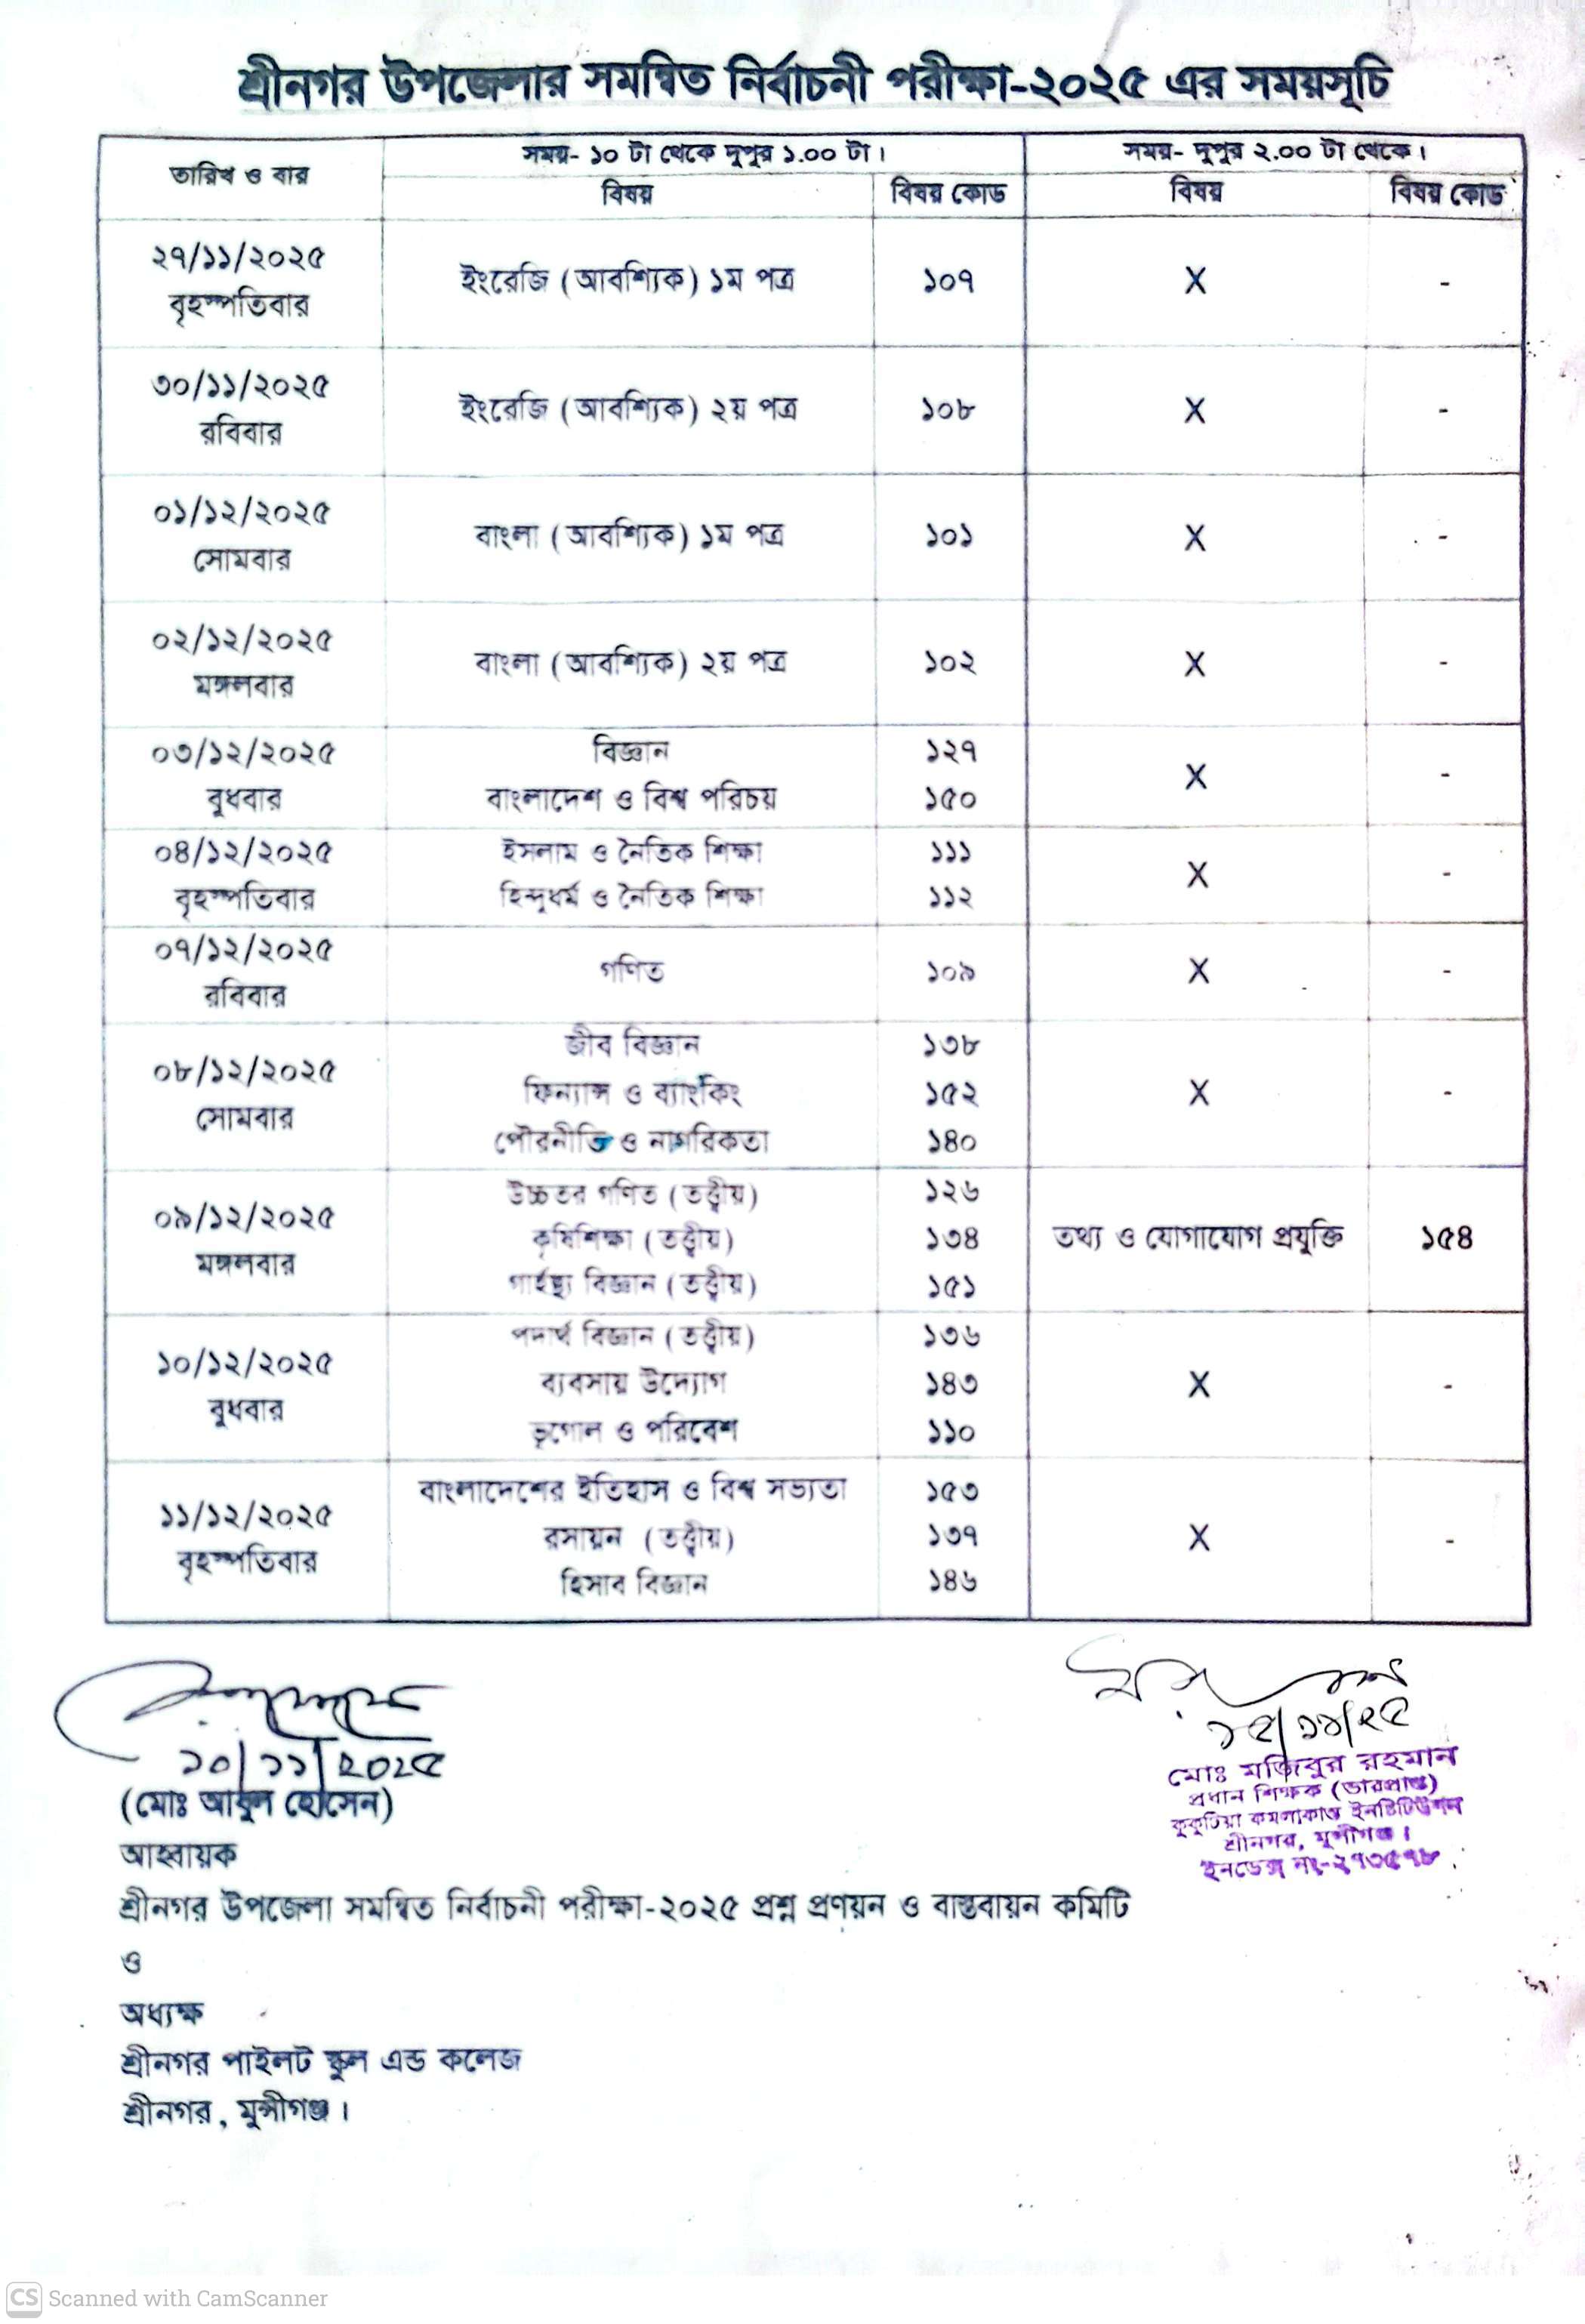 শ্রীনগর উপজেলার সমন্বিত নির্বাচনী পরীক্ষা-২০২৫ এর সময়সূচি
তারিখ ও বার সময়- ১০ টা থেকে দুপুর ১.০০ টা। সময়- দুপুর ২.০০ টা থেকে।
বিষয় বিষয় কোড বিষয় বিষয় কোড
২৭/১১/২০২৫
বৃহস্পতিবার
ইংরেজি (আবশ্যিক) ১ম পত্র ১০৭ X -
৩০/১১/২০২৫
রবিবার
ইংরেজি (আবশ্যিক) ২য় পত্র ১০৮ X -
০১/১২/২০২৫
সোমবার
বাংলা (আবশ্যিক) ১ম পত্র ১০১ X -
০২/১২/২০২৫
মঙ্গলবার
বাংলা (আবশ্যিক) ২য় পত্র ১০২ X -
০৩/১২/২০২৫
বুধবার
বিজ্ঞান ১২৭
বাংলাদেশ ও বিশ্ব পরিচয় ১৫০
X -
০৪/১২/২০২৫
বৃহস্পতিবার
ইসলাম ও নৈতিক শিক্ষা ১১১
হিন্দুধর্ম ও নৈতিক শিক্ষা ১১২
X -
০৭/১২/২০২৫
রবিবার
গণিত ১০৯ X -
০৮/১২/২০২৫
সোমবার
জীব বিজ্ঞান ১৩৮
ফিন্যান্স ও ব্যাংকিং ১৫২
পৌরনীতি ও নাগরিকতা ১৪০
X -
০৯/১২/২০২৫
মঙ্গলবার
উচ্চতর গণিত (তত্ত্বীয়) ১২৬
কৃষিশিক্ষা (তত্ত্বীয়) ১৩৪
গার্হস্থ্য বিজ্ঞান (তত্ত্বীয়) ১৫১
তথ্য ও যোগাযোগ প্রযুক্তি ১৫৪
১০/১২/২০২৫
বুধবার
পদার্থ বিজ্ঞান (তত্ত্বীয়) ১৩৬
ব্যবসায় উদ্যোগ ১৪৩
ভূগোল ও পরিবেশ ১১০
X -
১১/১২/২০২৫
বৃহস্পতিবার
বাংলাদেশের ইতিহাস ও বিশ্ব সভ্যতা ১৫৩
রসায়ন (তত্ত্বীয়) ১৩৭
হিসাব বিজ্ঞান ১৪৬
X -
১০/১১/২০২৫
(মোঃ আবুল হোসেন)
আহ্বায়ক
শ্রীনগর উপজেলা সমন্বিত নির্বাচনী পরীক্ষা-২০২৫ প্রশ্ন প্রণয়ন ও বাস্তবায়ন কমিটি
ও
অধ্যক্ষ
শ্রীনগর পাইলট স্কুল এন্ড কলেজ
শ্রীনগর, মুন্সীগঞ্জ।
মোঃ মজিবুর রহমান
প্রধান শিক্ষক (ভারপ্রাপ্ত)
কুকুটিয়া কমলাকান্ত ইনষ্টিটিউশন
শ্রীনগর, মুন্সীগঞ্জ।
ইনডেক্স নং-
CS Scanned with CamScanner